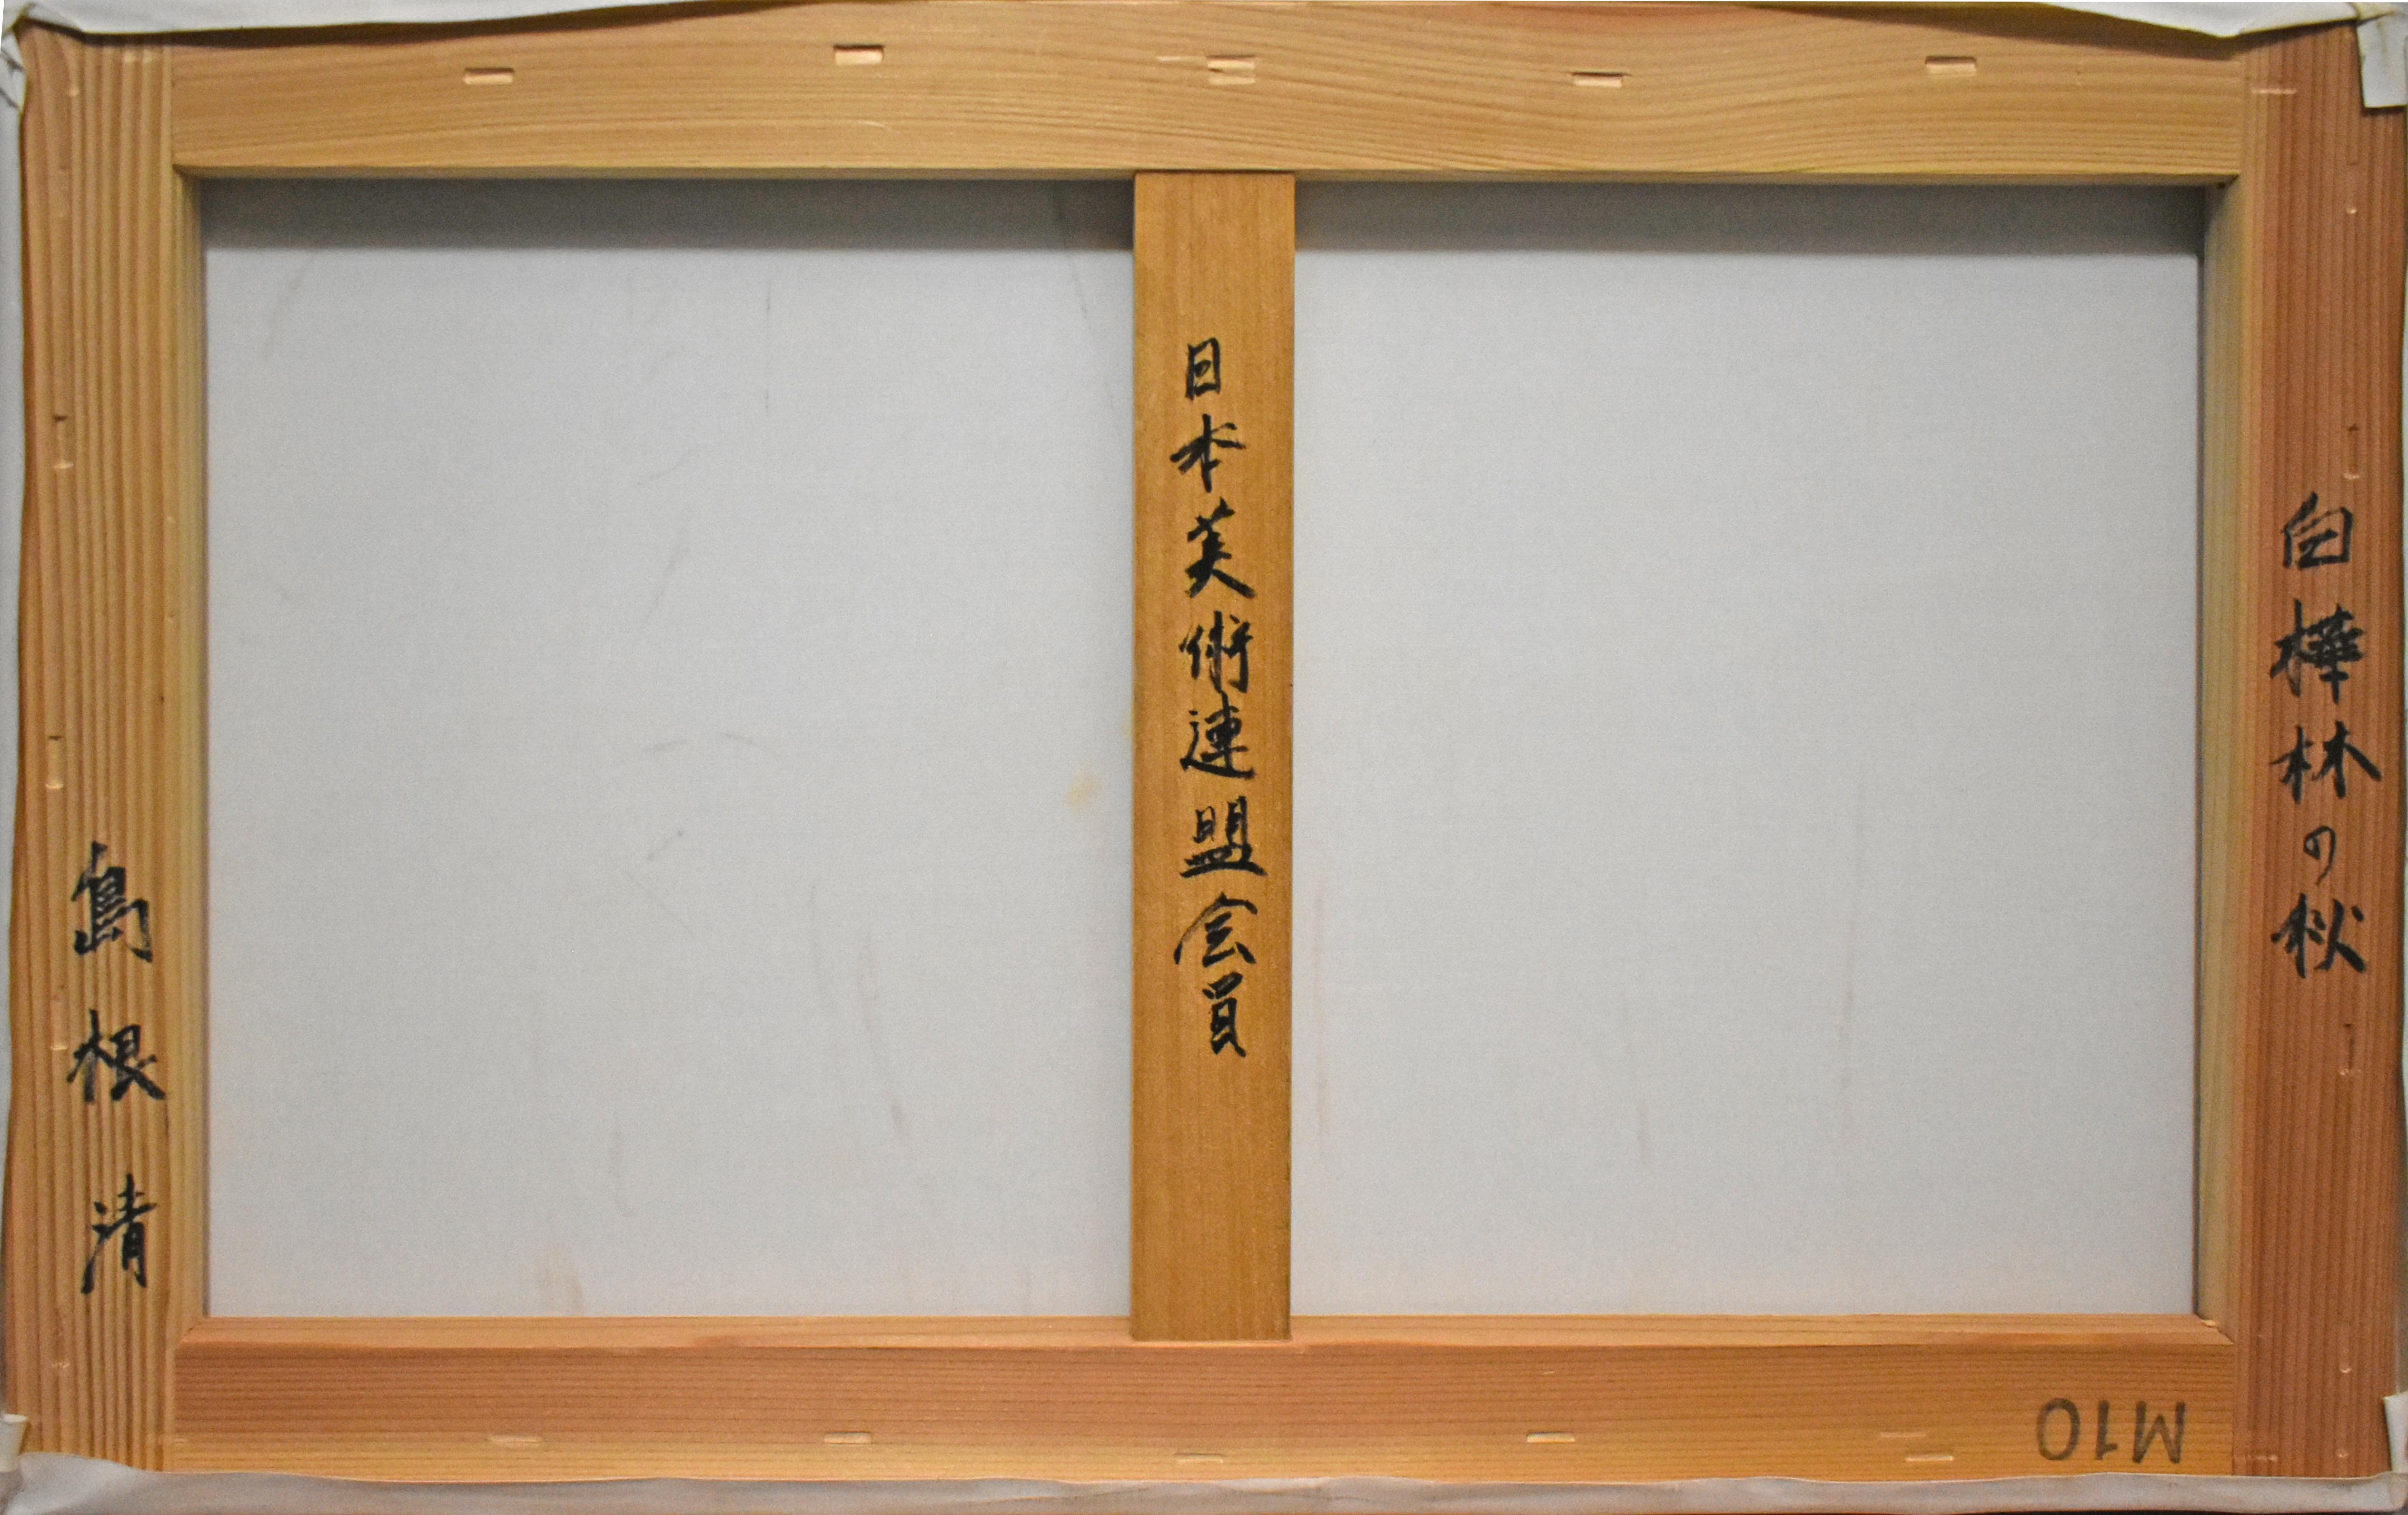 白樺林の秋
日本美術連盟会員
島根清
M10